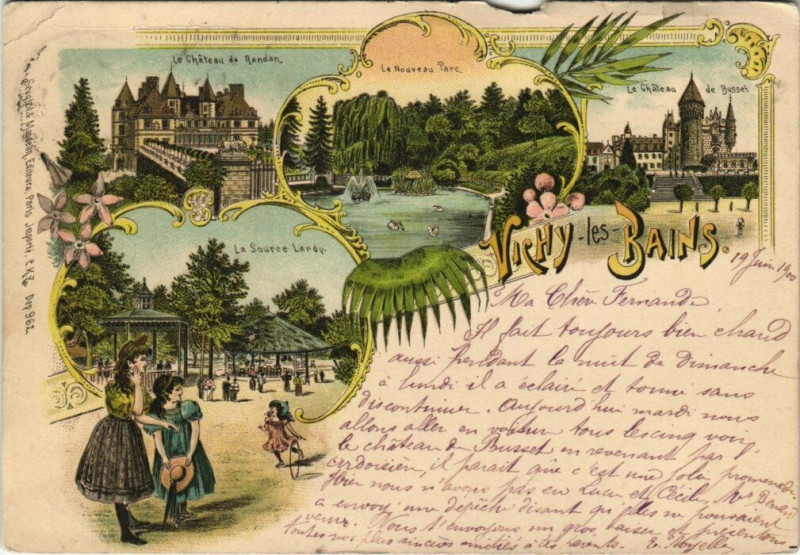 Le Château de Randan.
Le Nouveau Parc.
Le Château de Busset
La Source Lardy.
Vichy-les-Bains.
Editeurs, Paris
19 Juin 1900
Ma Chère Fernande
Il fait toujours bien chaud
aussi pendant la nuit de Dimanche
à lundi il a éclairé et tonné sans
discontinuer. Aujourd'hui mardi nous
allons aller en voiture tous les cinq voir
le château de Busset en revenant par l'
ardoisière, il parait que c'est une jolie promenade.
hier nous n'avons pas eu Lucie et Cécile, Mme
a envoyé une dépêche disant qu'elles ne pouvaient
venir. Nous t'envoyons un gros baiser et présentons
toutes nos plus sincères amitiés à tes parents.